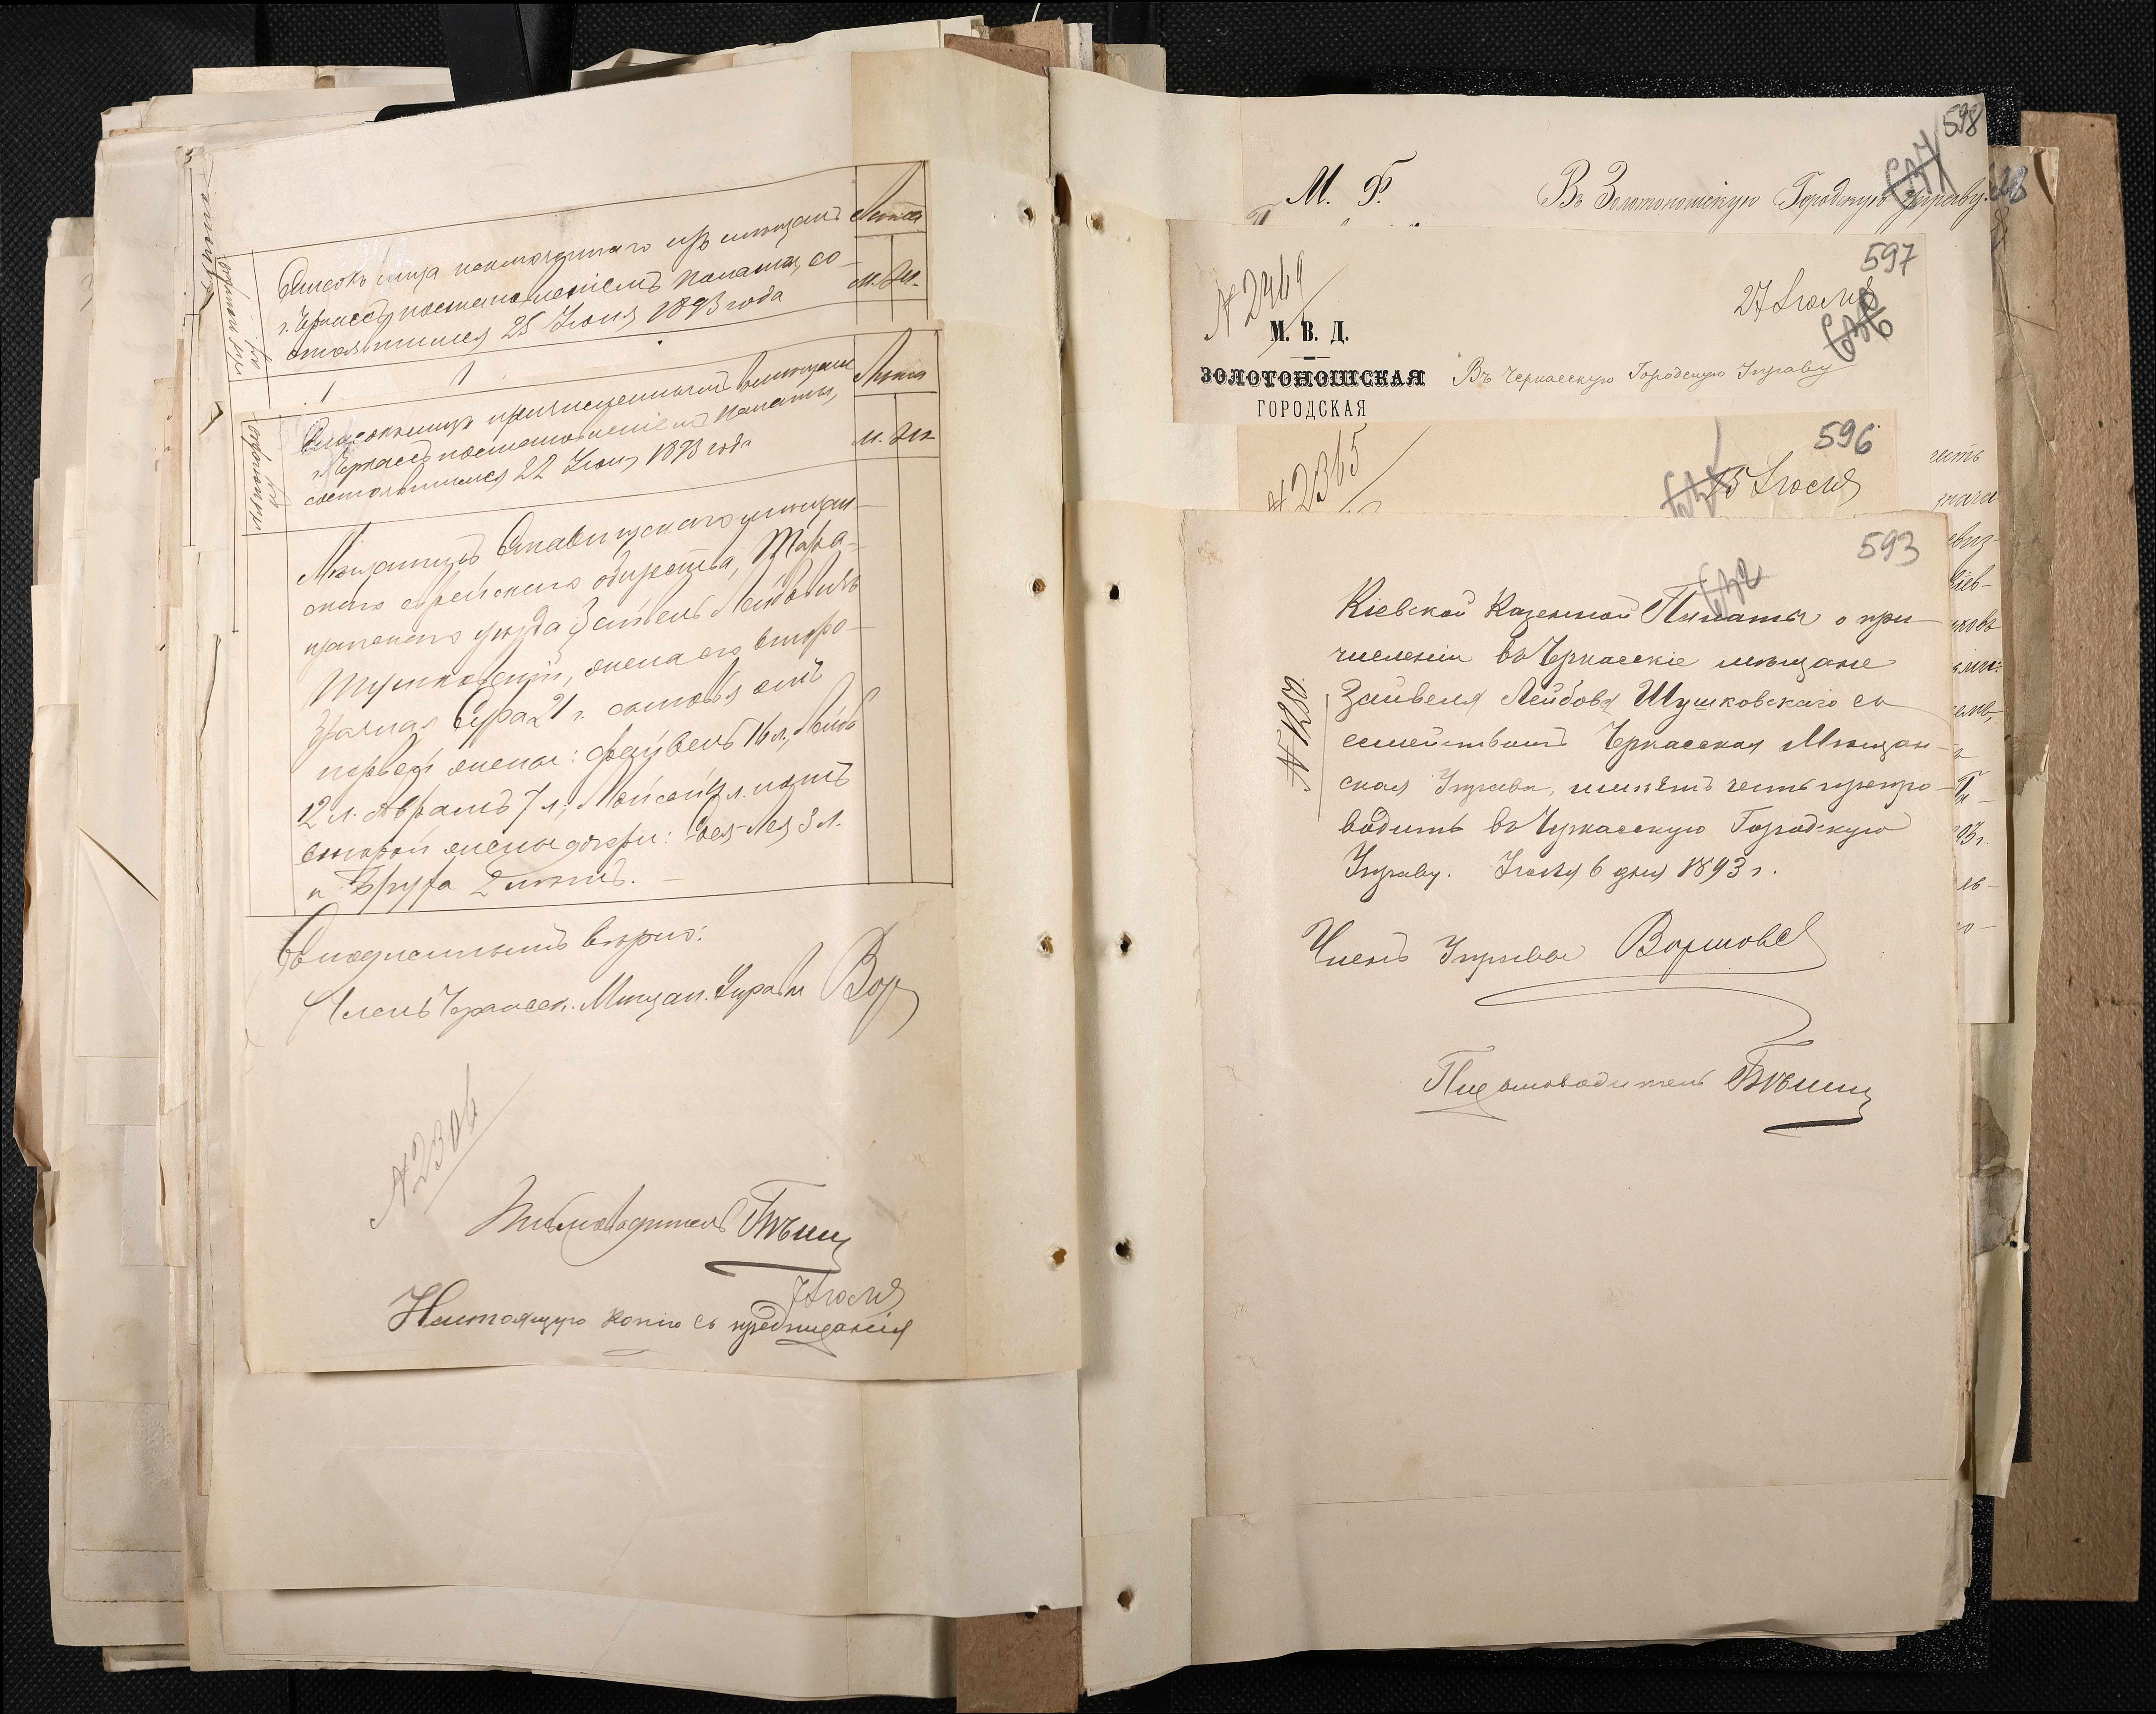 Списокъ лица исключеннаго изъ мѣщанъ
г. Черкассъ постановленіемъ Палаты, со-
стоявшимся 25 Іюня 1893 года
Лѣта
м. ж.
1 1
Списокъ лицъ причисленныхъ въ мѣщане
г. Черкассъ постановленіемъ Палаты,
состоявшимся 22 Іюня 1893 года
Лѣта
м. ж.
Мѣщанинъ Ставищскаго мѣщан-
скаго еврейскаго общества, Тара-
щанскаго уѣзда Зайвель Лейбовичъ
Шушковскій, жена его второ-
брачная Сура 21 г. сыновья отъ
первой жены: Файвель 16 л., Лейб
12 л. Аврамъ 7 л., Мойсей л. отъ
второй жены дочери: Бея-Лея 3 л.
и Бруха 2 лѣтъ. —
Съ подлиннымъ вѣрно:
Членъ Черкасск. Мѣщан. Управы Вор
№ 2306
Письмоводитель
7 Іюля
Настоящую копію съ предписанія
598
М. Ф.
Въ Золотоношскую Городскую Управу.
597
№ 2449
27 Іюля
М. В. Д.
ЗОЛОТОНОШСКАЯ
ГОРОДСКАЯ
Въ Черкасскую Городскую Управу
596
№ 2365
15 Іюля
593
Кіевской Казенной Палаты о при-
численіи въ Черкасскіе мѣщане
Зайвеля Лейбова Шушковскаго съ
семействомъ Черкасская Мѣщан-
ская Управа, имѣетъ честь препро-
водить въ Черкасскую Городскую
Управу. Іюля 6 дня 1893 г.
№ 1250.
Членъ Управы
Письмоводитель